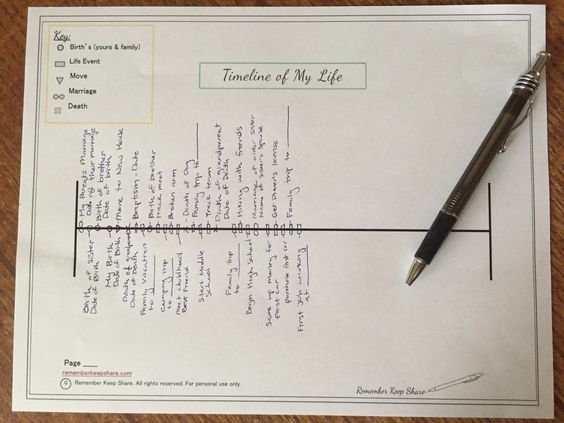 Key:
Birth's (yours & family)
Life Event
Move
Marriage
Death
Timeline of My Life
My Parents Marriage
Date of their marriage
Birth of brother
Date of birth
Move to New House
Baptism - Date
Birth of brother
track meet
Broken arm
Death of Dog
Family trip to
Track team
Death of grandparent
Date of Death
Hiking with friends
Marriage of older sister
Name of sister's spouse
Get Drivers license
Family trip to
Birth of sister
Date of Birth
My Birth
Date of Birth
Death of grandparent
Date of Death
Family Vacation
to
Camping trip
to
meet childhood
Best Friend
Start Middle
School
Family trip
to
Begin High School
Save up money for
First car
purchase first car
First Job working
at
Page
rememberkeepshare.com
© Remember Keep Share. All rights reserved. For personal use only.
Remember Keep Share